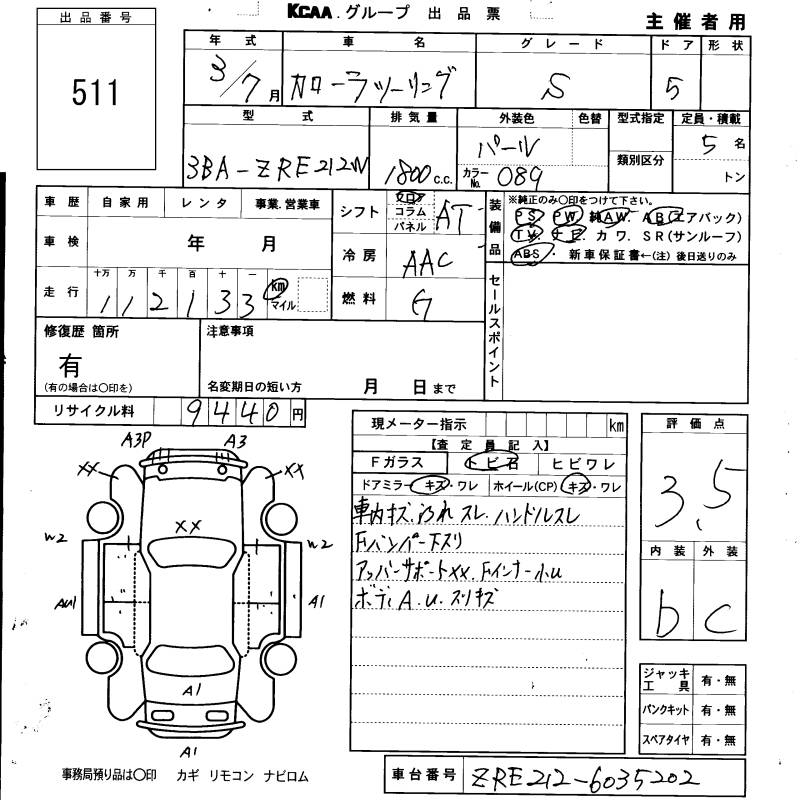 KCAA グループ 出品票
主催者用
出品番号
511
年式 車名 グレード ドア 形状
3/7月 カローラツーリング S 5
型式 排気量 外装色 色替 型式指定 定員・積載
3BA-ZRE212W 1800c.c. パール カラーNo. 089 類別区分 5名
トン
車歴 自家用 レンタ 事業.営業車
車検 年 月
走行 十万 万 千 百 十 一 km マイル
112133
シフト フロア コラム パネル AT
冷房 AAC
燃料 G
装備品
※純正のみ〇印をつけて下さい。
PS PW 純AW. AB(エアバック)
TV. ナビ. カワ. SR(サンルーフ)
ABS・ 新車保証書←(注) 後日送りのみ
セールスポイント
修復歴 箇所
有
(有の場合は〇印を)
注意事項
名変期日の短い方 月 日まで
リサイクル料 9440円
現メーター指示 km
【査定員記入】
Fガラス トビ石 ヒビワレ
ドアミラー キズ・ワレ ホイール(CP) キズ・ワレ
車内キズ.汚れ スレ.ハンドルスレ
Fバンパー下スリ
アッパーサポートXX.Fインナー小U
ボディA.U.スリキズ
評価点
3.5
内装 外装
b c
ジャッキ工具 有・無
パンクキット 有・無
スペアタイヤ 有・無
A3P A3
XX XX
XX
W2 W2
AU1 A1
A1
A1
事務局預り品は〇印 カギ リモコン ナビロム
車台番号 ZRE212-6035202